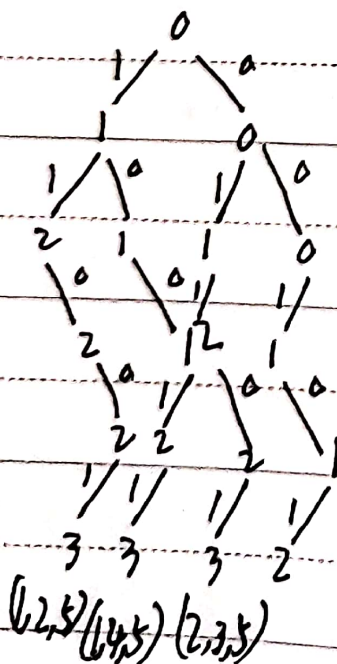 0
1 0
1 0
1 0 1 0
2 1 1 0
0 0 1 1
2 1 2 1
0 1 0 0
2 2 2 1
1 1 1 1
3 3 3 2
(1,2,5) (1,4,5) (2,3,5)